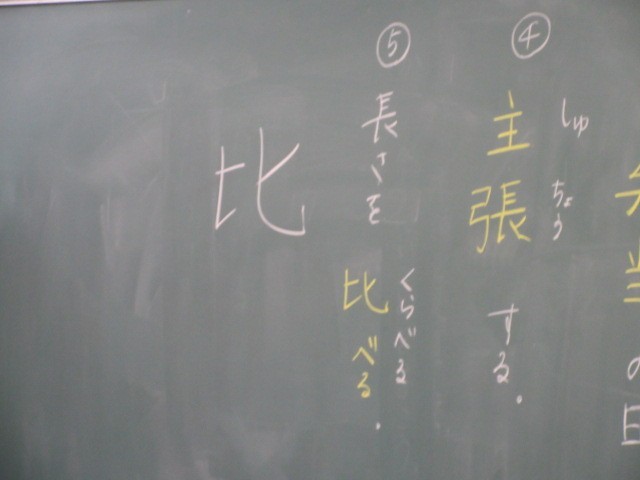 弁当の日
④
主張する。
しゅちょう
⑤
長さを比べる。
くらべる
比